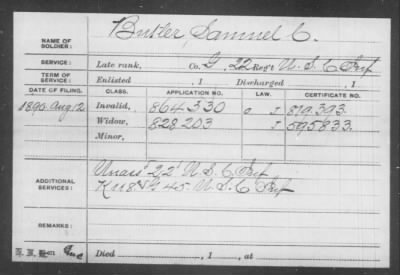 NAME OF SOLDIER: Butler, Samuel C.
SERVICE: Late rank, Co. G, 22 Reg't U. S. C. Inf
TERM OF SERVICE: Enlisted , 1 Discharged , 1
DATE OF FILING. CLASS. APPLICATION NO. LAW. CERTIFICATE NO.
1890 Aug 12 Invalid, 864330 819.393
Widow, 828203 595833
Minor,
ADDITIONAL SERVICES: Unass'd 22' U S C Inf
K 118 & G 45 U. S. C Inf
REMARKS:
Died , 1 , at